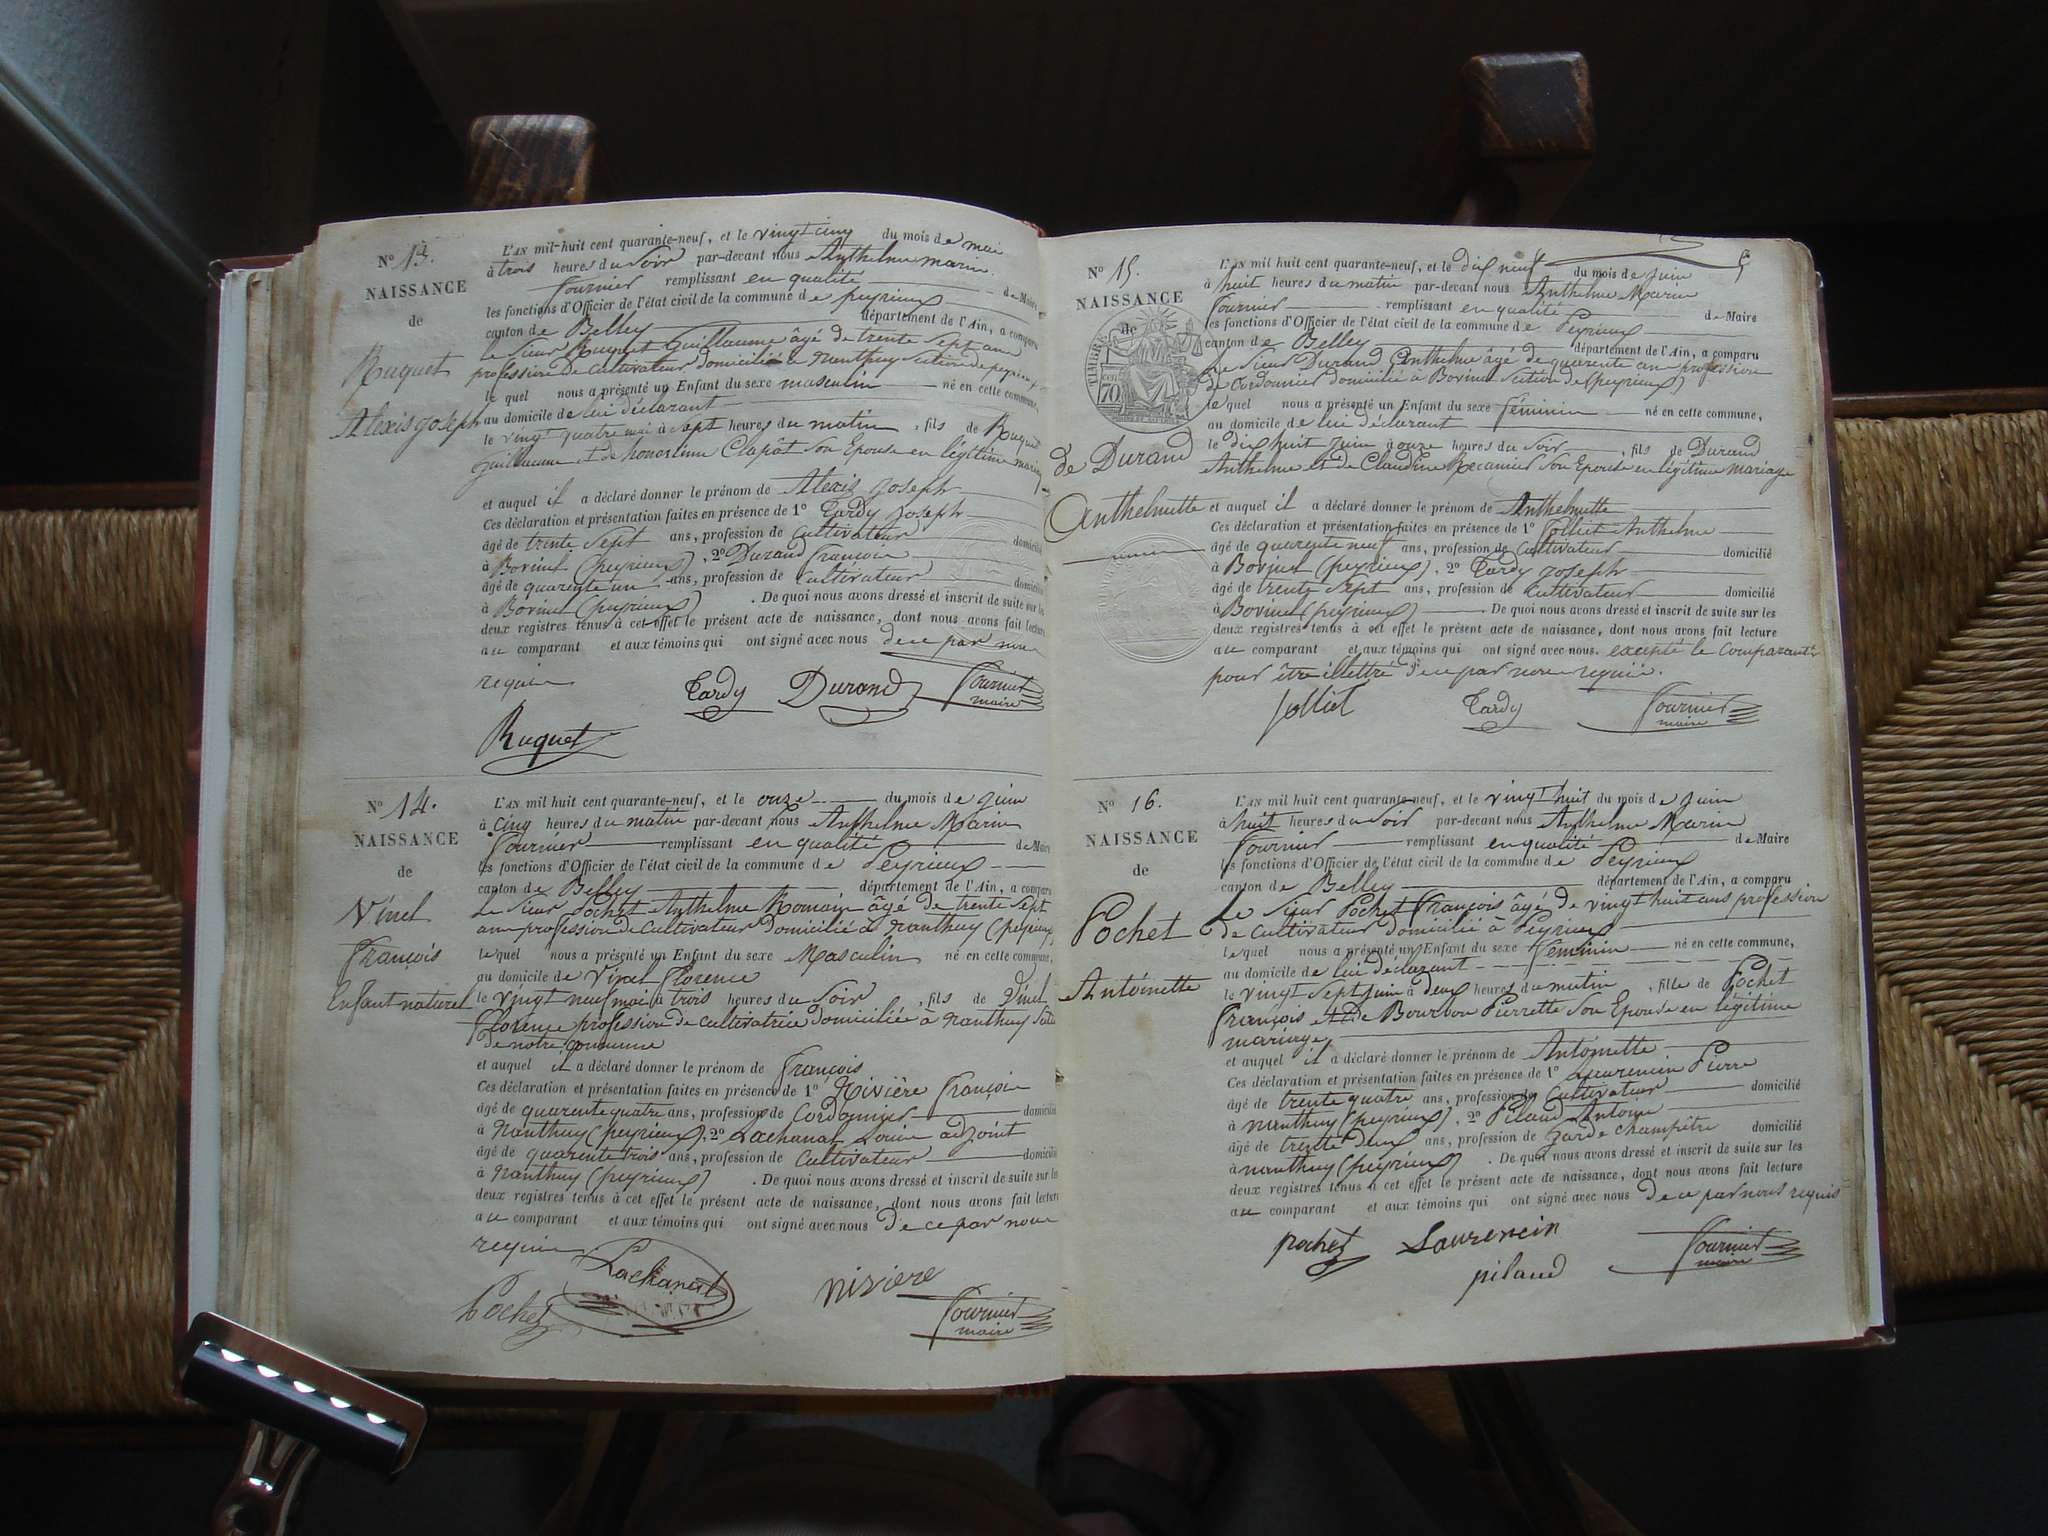 N° 13.
NAISSANCE
de
Ruquet
Alexis Joseph
L'AN mil-huit cent quarante-neuf, et le vingt cinq du mois de mai
à trois heures du Soir par-devant nous Anthelme marin
Fournier remplissant en qualité de Maire
les fonctions d'Officier de l'état civil de la commune de peyrieux
canton de Belley département de l'Ain, a comparu
le Sieur Ruquet Guillaume âgé de trente Sept ans
profession de cultivateur domicilié à Nanthuy Section de peyrieux
le quel nous a présenté un Enfant du sexe masculin né en cette commune,
au domicile de lui déclarant
le vingt quatre mai à Sept heures du matin, fils de Ruquet
Guillaume et de honorine Clapot Son Epouse en légitime mariage
et auquel il a déclaré donner le prénom de Alexis Joseph
Ces déclaration et présentation faites en présence de 1° Tardy Joseph
âgé de trente Sept ans, profession de cultivateur domicilié
à Bovinel (peyrieux), 2° Durand françois
âgé de quarente un ans, profession de cultivateur domicilié
à Bovinel (peyrieux). De quoi nous avons dressé et inscrit de suite sur les
deux registres tenus à cet effet le présent acte de naissance, dont nous avons fait lecture
au comparant et aux témoins qui ont signé avec nous de ce par nous
requis
Tardy Durand Fournier
maire
Ruquet
N° 14.
NAISSANCE
de
Vinel
François
Enfant naturel
L'AN mil huit cent quarante-neuf, et le onze du mois de Juin
à cinq heures du matin par-devant nous Anthelme Marin
Fournier remplissant en qualité de Maire
les fonctions d'Officier de l'état civil de la commune de Peyrieux
canton de Belley département de l'Ain, a comparu
Le Sieur Pochet Anthelme Romain âgé de trente Sept
ans profession de cultivateur domicilié à Nanthuy (peyrieux)
lequel nous a présenté un Enfant du sexe Masculin né en cette commune,
au domicile de Vinel Florence
le vingt neuf mai à trois heures du Soir, fils de Vinel
Florence profession de cultivatrice domiciliée à Nanthuy
de notre commune
et auquel il a déclaré donner le prénom de François
Ces déclaration et présentation faites en présence de 1° Rivière François
âgé de quarente quatre ans, profession de Cordonnier domicilié
à Nanthuy (peyrieux), 2° Lachanal Louis adjoint
âgé de quarente trois ans, profession de cultivateur domicilié
à Nanthuy (peyrieux). De quoi nous avons dressé et inscrit de suite sur les
deux registres tenus à cet effet le présent acte de naissance, dont nous avons fait lecture
au comparant et aux témoins qui ont signé avec nous de ce par nous
requis
Lachanal
Pochet rivière Fournier
maire
N° 15.
NAISSANCE
de
TIMBRE
70
de Durand
Anthelmette
L'AN mil huit cent quarante-neuf, et le dix neuf du mois de Juin
à huit heures du matin par-devant nous Anthelme Marin
Fournier remplissant en qualité de Maire
les fonctions d'Officier de l'état civil de la commune de Peyrieux
canton de Belley département de l'Ain, a comparu
Le Sieur Durand Anthelme âgé de quarente ans profession
de Cordonnier domicilié à Bovinel Section de (Peyrieux)
le quel nous a présenté un Enfant du sexe féminin né en cette commune,
au domicile de lui déclarant
le dix huit Juin à onze heures du Soir, fils de Durand
Anthelme et de Claudine Recamier Son Epouse en légitime mariage
et auquel il a déclaré donner le prénom de Anthelmette
Ces déclaration et présentation faites en présence de 1° Jolliet Anthelme
âgé de quarente neuf ans, profession de cultivateur domicilié
à Bovinel (peyrieux), 2° Tardy Joseph
âgé de trente Sept ans, profession de cultivateur domicilié
à Bovinel (peyrieux). De quoi nous avons dressé et inscrit de suite sur les
deux registres tenus à cet effet le présent acte de naissance, dont nous avons fait lecture
au comparant et aux témoins qui ont signé avec nous. excepté le comparant
pour être illettré de ce par nous requis.
Jolliet Tardy Fournier
maire
N° 16.
NAISSANCE
de
Pochet
Antoinette
L'AN mil huit cent quarante-neuf, et le vingt huit du mois de Juin
à huit heures du Soir par-devant nous Anthelme Marin
Fournier remplissant en qualité de Maire
les fonctions d'Officier de l'état civil de la commune de Peyrieux
canton de Belley département de l'Ain, a comparu
Le Sieur Pochet François âgé de vingt huit ans profession
de cultivateur domicilié à Peyrieux
le quel nous a présenté un Enfant du sexe Féminin né en cette commune,
au domicile de lui déclarant
le vingt Sept Juin à deux heures du matin, fille de Pochet
François et de Bourbon Pierrette Son Epouse en légitime
mariage
et auquel il a déclaré donner le prénom de Antoinette
Ces déclaration et présentation faites en présence de 1° Laurencin Pierre
âgé de trente quatre ans, profession de cultivateur domicilié
à nanthuy (peyrieux), 2° Pilaud Antoine
âgé de trente deux ans, profession de garde champêtre domicilié
à nanthuy (peyrieux). De quoi nous avons dressé et inscrit de suite sur les
deux registres tenus à cet effet le présent acte de naissance, dont nous avons fait lecture
au comparant et aux témoins qui ont signé avec nous de ce par nous requis
pochet Laurencin Fournier
maire
pilaud